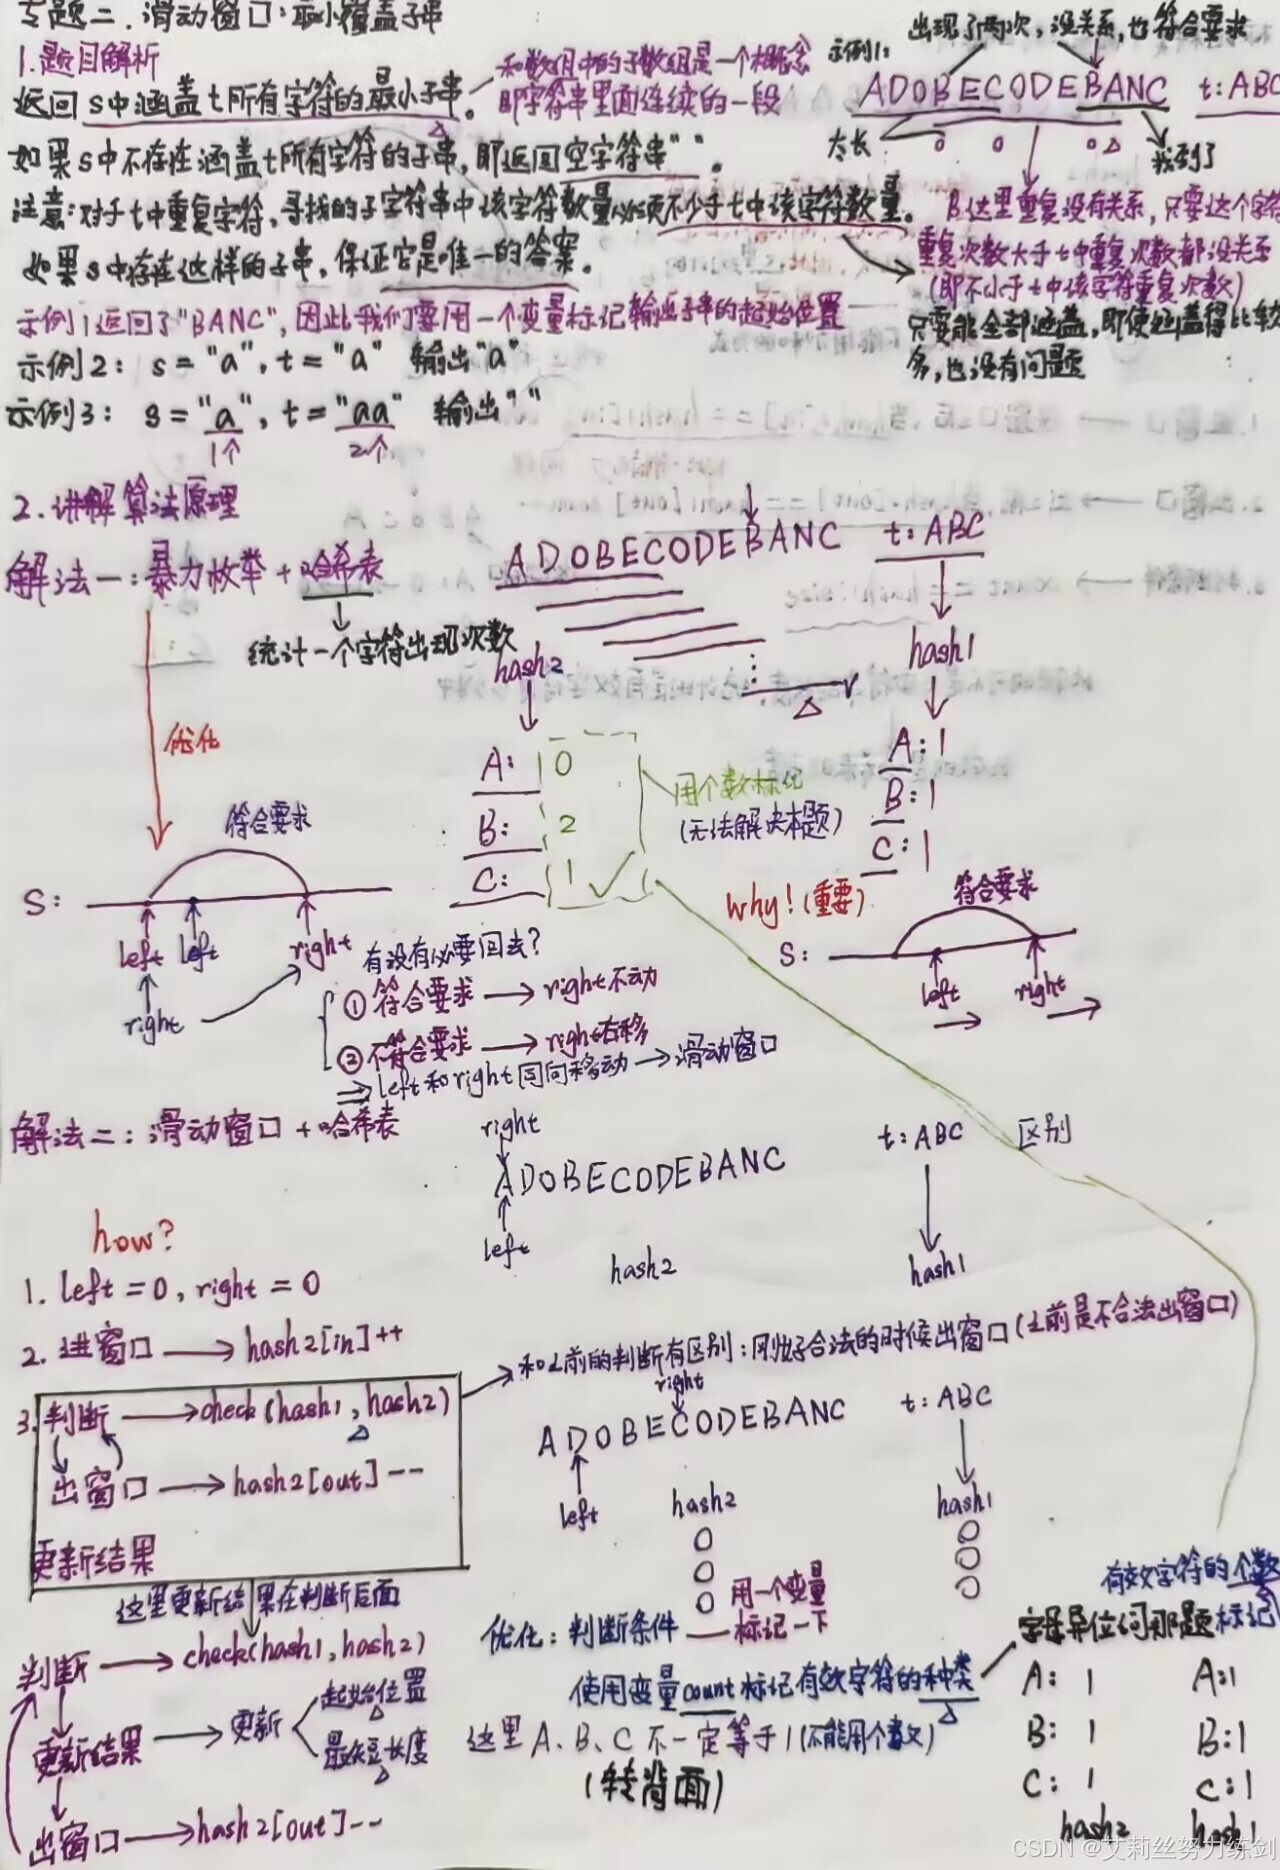 专题二.滑动窗口:最小覆盖子串
1.题目解析
返回s中涵盖t所有字符的最小子串。
和数组中的子数组是一个概念
即字符串里面连续的一段
如果s中不存在涵盖t所有字符的子串,即返回空字符串""。
注意:对于t中重复字符,寻找的子字符串中该字符数量必须不少于t中该字符数量。
如果s中存在这样的子串,保证它是唯一的答案。
示例1返回了"BANC",因此我们要用一个变量标记输出子串的起始位置
示例2: s="a",t="a" 输出"a"
示例3: s="a",t="aa" 输出""
1个 2个
示例1:
出现了两次,没关系,也符合要求
ADOBECODEBANC t:ABC
太长
找到了
B这里重复没有关系,只要这个字符
重复次数大于t中重复次数都没关系
(即不小于t中该字符重复次数)
只要能全部涵盖,即使涵盖得比较
多,也没有问题
2.讲解算法原理
解法一:暴力枚举+哈希表
统计一个字符出现次数
ADOBECODEBANC t:ABC
hash2
hash1
A: 0
B: 2
C: 1
用个数标记
(无法解决本题)
A:1
B:1
C:1
优化
符合要求
S:
left left right
right
有没有必要回去?
①符合要求→right不动
②不符合要求→right右移
⇒left和right同向移动→滑动窗口
why!(重要)
符合要求
S:
left right
解法二:滑动窗口+哈希表
right
ADOBECODEBANC
left
hash2
t:ABC
hash1
区别
how?
1.left=0,right=0
2.进窗口→hash2[in]++
3.判断→check(hash1,hash2)
出窗口→hash2[out]--
更新结果
和之前的判断有区别:刚好合法的时候出窗口(之前是不合法出窗口)
right
ADOBECODEBANC
left
hash2
t:ABC
hash1
这里更新结果在判断后面
判断→check(hash1,hash2)
更新结果→更新
起始位置
最短长度
出窗口→hash2[out]--
优化:判断条件
用一个变量
标记一下
使用变量count标记有效字符的种类
这里A、B、C不一定等于1(不能用个数)
(转背面)
有效字符的个数
字母异位词那题标记
A: 1 A:1
B: 1 B:1
C: 1 C:1
hash2 hash1
CSDN @艾莉丝努力练剑